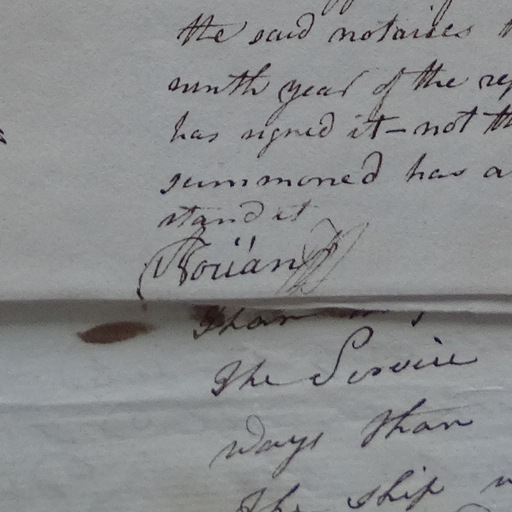 the said notaries
ninth year of the rep
has signed it - not th
summoned has a
stand it
Roüan
Than
the Service
ways than
the ship